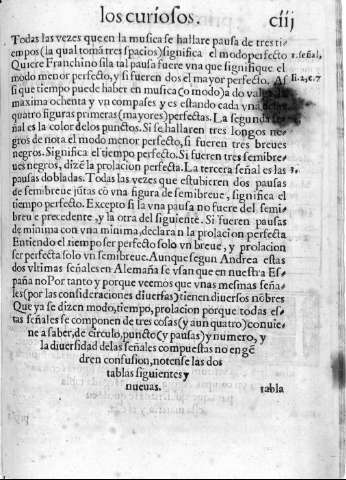 los curiosos. ciij
Todas las vezes que en la musica se hallare pausa de tres ti-
empos (la qual toma tres spacios) significa el modo perfecto 1. señal,
Quiere Franchino si la tal pausa fuere vna que signifique el
modo menor perfecto, y si fueren dos el mayor perfecto. As li. 2. c. 7
si que tiempo puede haber en musica (o modo) a do val
maxima ochenta y vn compases y es estando cada vna
quatro figuras primeras (mayores) perfectas. La segunda se-
ñal es la color delos punctos. Si se hallaren tres longos ne-
gros de nota el modo menor perfecto, si fueren tres breues
negros. Significa el tiempo perfecto. Si fueren tres semibre-
ues negros, dizē la prolacion perfecta. La tercera señal es las 3.
pausas dobladas. Todas las vezes que estubieren dos pausas
de semibreue jūtas cō vna figura de semibreue, significa el
tiempo perfecto. Excepto si la vna pausa no fuere del semi-
breue precedente, y la otra del siguiente. Si fueren pausas
de minima con vna minima, declara n la prolacion perfecta
Entiendo el tiempo ser perfecto solo vn breue, y prolacion
ser perfecta solo vn semibreue. Aunque segun Andrea estas
dos vltimas señales en Alemaña se vsan que en nuestra Es-
paña no Por tanto y porque veemos que vnas mesmas seña-
les (por las consideraciones diuersas) tienen diuersos nōbres
Que ya se dizen modo, tiempo, prolacion porque todas es-
tas señales se componen de tres cosas (y aun quatro) conuie-
ne a saber, de circulo, puncto (y pausas) y numero, y
la diuersidad delas señales compuestas no engē
dren confusion, notense las dos
tablas siguientes y
nueuas. tabla